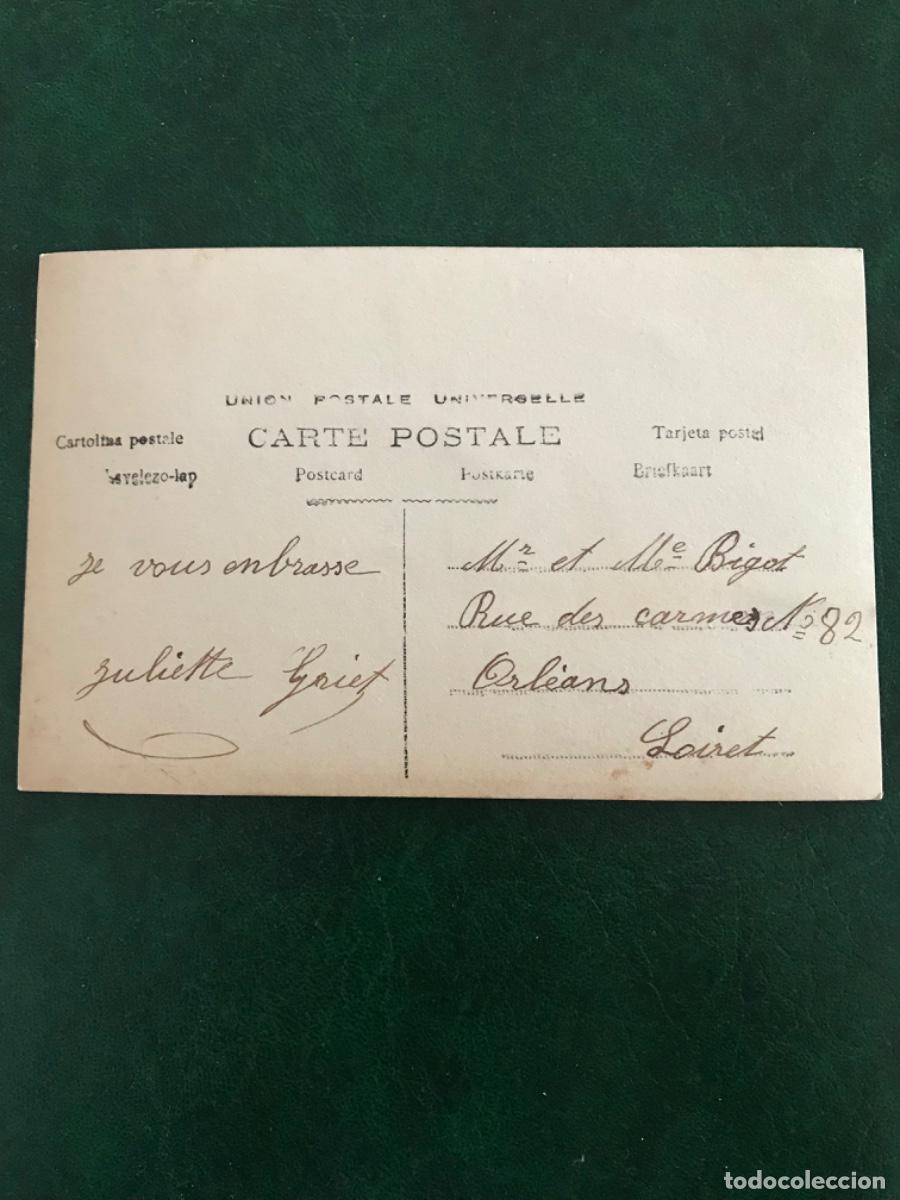 UNION POSTALE UNIVERSELLE
Cartolina postale CARTE POSTALE Tarjeta postal
Levelezo-lap Postcard Postkarte Briefkaart
je vous enbrasse
Juliette Griet
Mr et Me Bigot
Rue des carmes No 82
Orléans
Loiret
todocoleccion